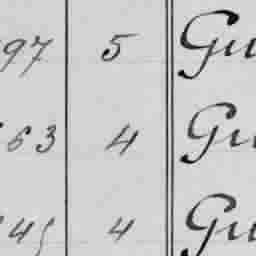 97 5 Gu
63 4 Gu
45 4 Gu